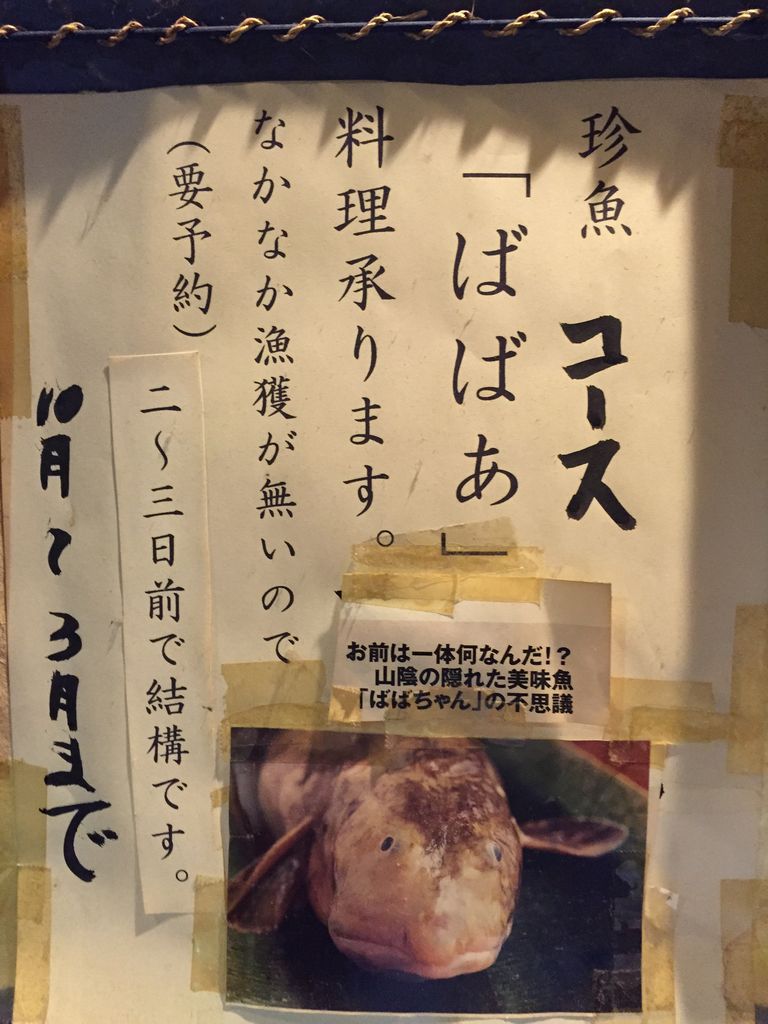 珍魚 コース
「ばばあ」
料理承ります。
なかなか漁獲が無いので
(要予約)
二〜三日前で結構です。
10月〜3月まで
お前は一体何なんだ!?
山陰の隠れた美味魚
「ばばちゃん」の不思議